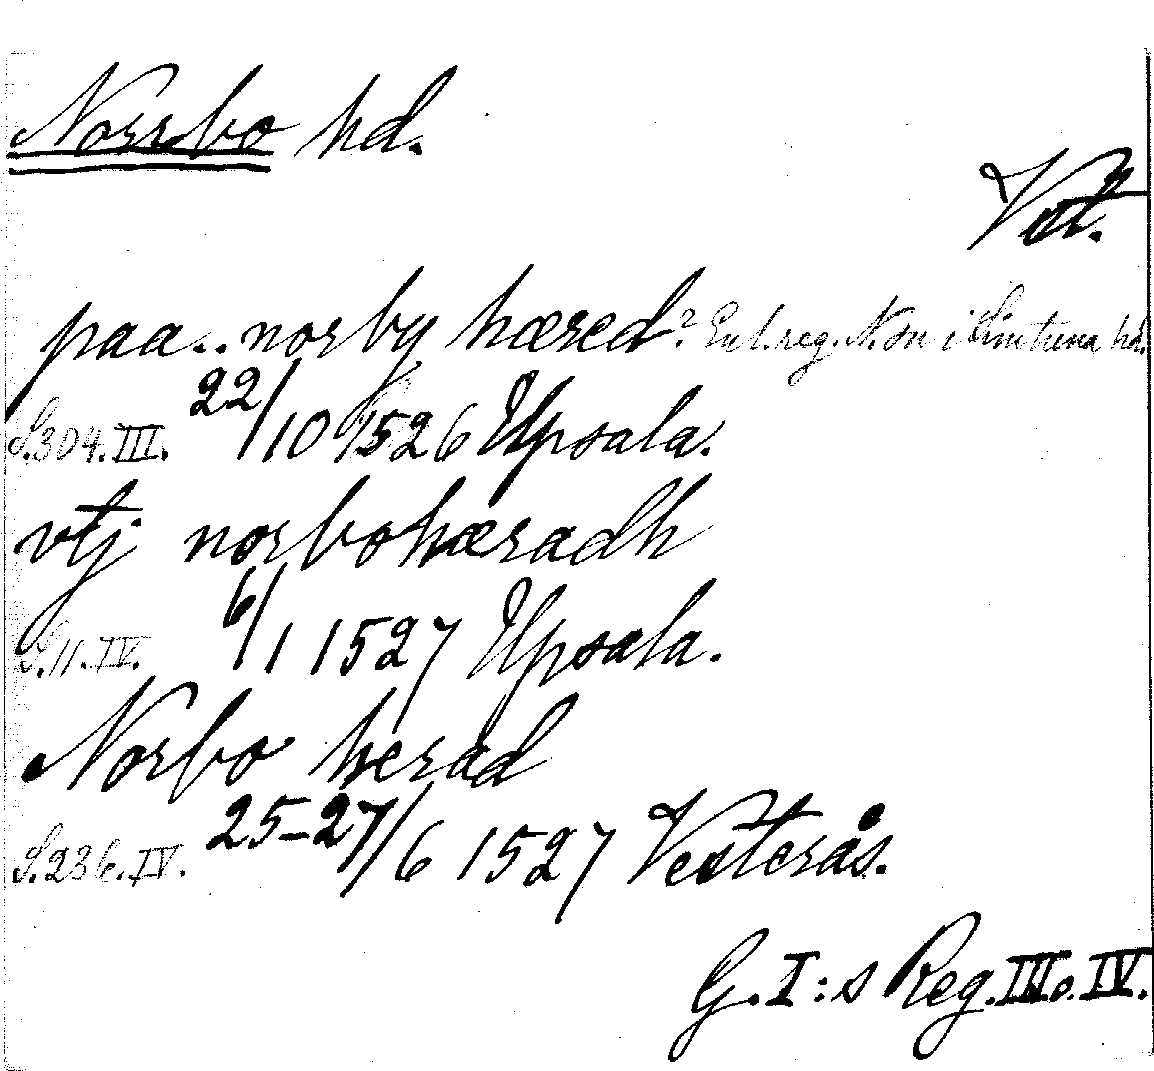 Norrbo hd.
Vst.
paa.. norby hæred? Enl. reg. N:n i Simtuna hd.
S. 304. III. 22/10 1526 Upsala.
vtj norbohæradh
S. 11. IV. 6/1 1527 Upsala.
Norbo herad
S. 236. IV. 25-27/6 1527 Vesterås.
G. I:s Reg. III o. IV.